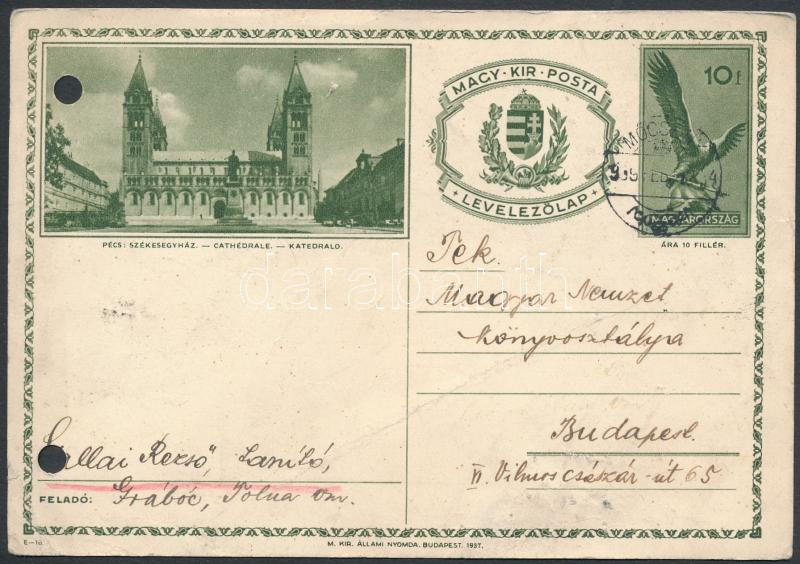 PÉCS: SZÉKESEGYHÁZ. — CATHÉDRALE. — KATEDRALO.
MAGY·KIR·POSTA
+ LEVELEZŐLAP +
10 f
MAGYARORSZÁG
ÁRA 10 FILLÉR.
Tek.
Magyar Nemzet
Könyvosztálya
Budapest.
VI. Vilmos császár-út 65
Kallai Rezső, tanító,
FELADÓ: Grábóc, Tolna vm.
E—16.
M. KIR. ÁLLAMI NYOMDA, BUDAPEST. 1937.
darabanth